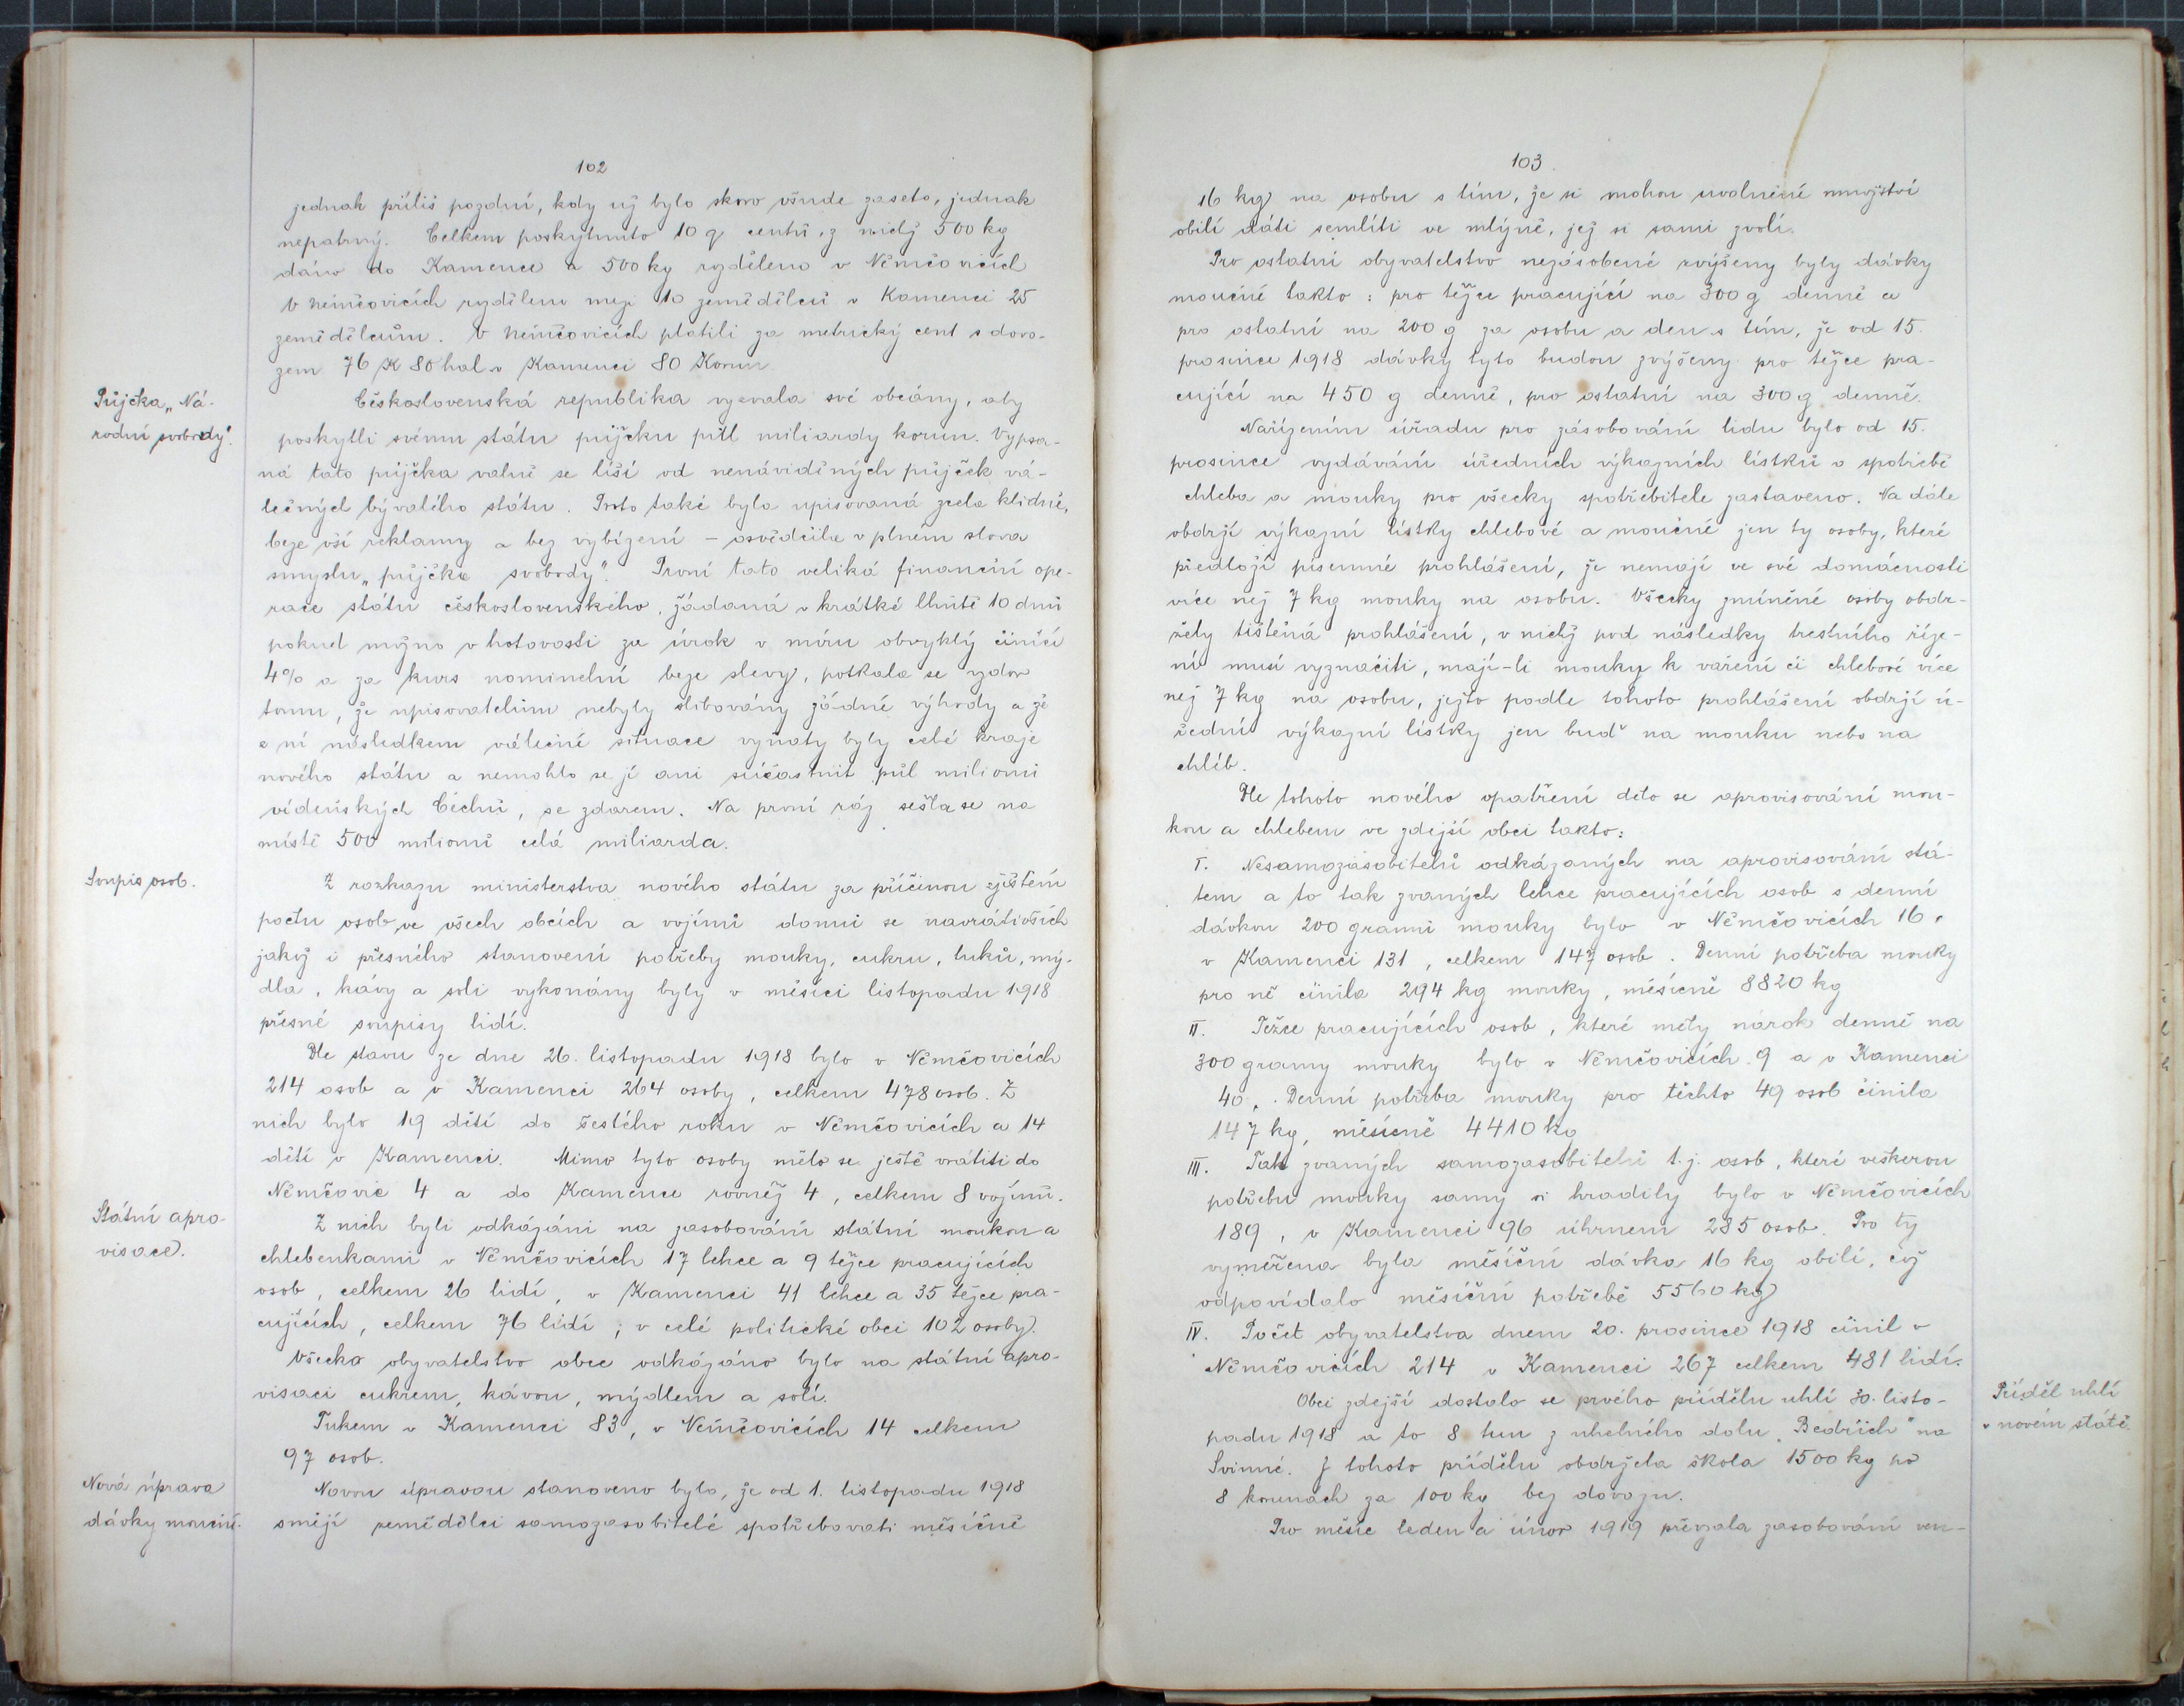 102
jednak příliš pozdní, kdy už bylo skoro všude zaseto, jednak
nepatrný. Celkem poskytnuto 10 q centů, z nichž 500 kg
dáno do Kamence a 500 kg rozděleno v Němčovicích
V Němčovicích rozděleno mezi 10 zemědělců v Kamenci 25
zemědělcům. V Němčovicích platili za metrický cent s dovo-
zem 76 K 80 hal v Kamenci 80 Korun.
Půjčka „Ná-
rodní svobody“.
Československá republika vyzvala své občany, aby
poskytli svému státu půjčku půll miliardy korun. Vypsa-
ná tato půjčka valně se liší od nenáviděných půjček vá-
lečných bývalého státu. Proto také byla upisovaná zcela klidně,
beze vší reklamy a bez vybízení – osvědčila v plném slova
smyslu „půjčka svobody“. První tato veliká finanční ope-
race státu československého, žádaná v krátké lhůtě 10 dnů
pokud možno v hotovosti za úrok v míru obvyklý činící
4% a za kurs nominelní beze slevy, potkala se vzdor
tomu, že upisovatelům nebyly slibovány žádné výhody a že
z ní následkem válečné situace vyňaty byly celé kraje
nového státu a nemohlo se jí ani súčastnit půl milionu
vídeňských Čechů, se zdarem. Na první ráz sešla se na
místě 500 milionů celá miliarda.
Soupis osob.
Z rozkazu ministerstva nového státu za příčinou zjištění
počtu osob ve všech obcích a vojínů domů se navrátivších
jakož i přesného stanovení potřeby mouky, cukru, tuků, mý-
dla, kávy a soli vykonány byly v měsíci listopadu 1918
přesné soupisy lidí.
Dle stavu ze dne 26. listopadu 1918 bylo v Němčovicích
214 osob a v Kamenci 264 osoby, celkem 478 osob. Z
nich bylo 19 dětí do šestého roku v Němčovicích a 14
dětí v Kamenci. Mimo tyto osoby mělo se ještě vrátiti do
Němčovic 4 a do Kamence rovněž 4, celkem 8 vojínů.
Státní apro-
visace.
Z nich byli odkázáni na zasobování státní moukou a
chlebenkami v Němčovicích 17 lehce a 9 těžce pracujících
osob, celkem 26 lidí, v Kamenci 41 lehce a 35 těžce pra-
cujících, celkem 76 lidí; v celé politické obci 102 osoby.
Všecko obyvatelstvo obce odkázáno bylo na státní apro-
visaci cukrem, kávou, mýdlem a solí.
Tukem v Kamenci 83, v Němčovicích 14 celkem
97 osob.
Nová úprava
dávky moučné.
Novou úpravou stanoveno bylo, že od 1. listopadu 1918
smějí zemědělci samozasobitelé spotřebovati měsíčně
103
16 kg na osobu s tím, že si mohou uvolněné množství
obilí dáti semlíti ve mlýně, jež si sami zvolí.
Pro ostatní obyvatelstvo nezásobené zvýšeny byly dávky
moučné takto: pro těžce pracující na 300 g denně a
pro ostatní na 200 g za osobu a den s tím, že od 15.
prosince 1918 dávky tyto budou zvýšeny pro těžce pra-
cující na 450 g denně, pro ostatní na 300 g denně.
Nařízením úřadu pro zásobování lidu bylo od 15.
prosince vydávání úředních výkazních lístků o spotřebě
chleba a mouky pro všecky spotřebitele zastaveno. Na dále
obdrží výkazní lístky chlebové a moučné jen ty osoby, které
předloží písemné prohlášení, že nemají ve své domácnosti
více než 7 kg mouky na osobu. Všecky zmíněné osoby obdr-
žely tištěná prohlášení, v nichž pod následky trestního říze-
ní musí vyznačiti, mají-li mouky k vaření či chlebové více
než 7 kg na osobu, ježto podle tohoto prohlášení obdrží ú-
řední výkazní lístky jen buď na mouku nebo na
chlíb.
Dle tohoto nového opatření dělo se aprovisování mou-
kou a chlebem ve zdejší obci takto:
I. Nesamozásobitelů odkázaných na aprovisování stá-
tem a to tak zvaných lehce pracujících osob s denní
dávkou 200 gramů mouky bylo v Němčovicích 16,
v Kamenci 131, celkem 147 osob. Denní potřeba mouky
pro ně činila 294 kg mouky, měsíčně 8820 kg
II. Těžce pracujících osob, které měly nárok denně na
300 gramy mouky bylo v Němčovicích 9 a v Kamenci
40. Denní potřeba mouky pro těchto 49 osob činila
147 kg, měsíčně 4410 kg
III. Tak zvaných samozasobitelů t. j. osob, které veškerou
potřebu mouky samy si hradily bylo v Němčovicích
189, v Kamenci 96 úhrnem 285 osob. Pro ty
vyměřena byla měsíční dávka 16 kg obilí, což
odpovídalo měsíční potřebě 5560 kg
IV. Počet obyvatelstva dnem 20. prosince 1918 činil v
Němčovicích 214 v Kamenci 267 celkem 481 lidí.
Příděl uhlí
v novém státě.
Obci zdejší dostalo se prvého přídělu uhlí 30. listo-
padu 1918 a to 8 tun z uhelného dolu „Bedřich“ na
Svinné. Z tohoto přídělu obdržela škola 1500 kg po
8 korunách za 100 kg bez dovozu.
Pro měsíc leden a únor 1919 převzala zasobování ven-